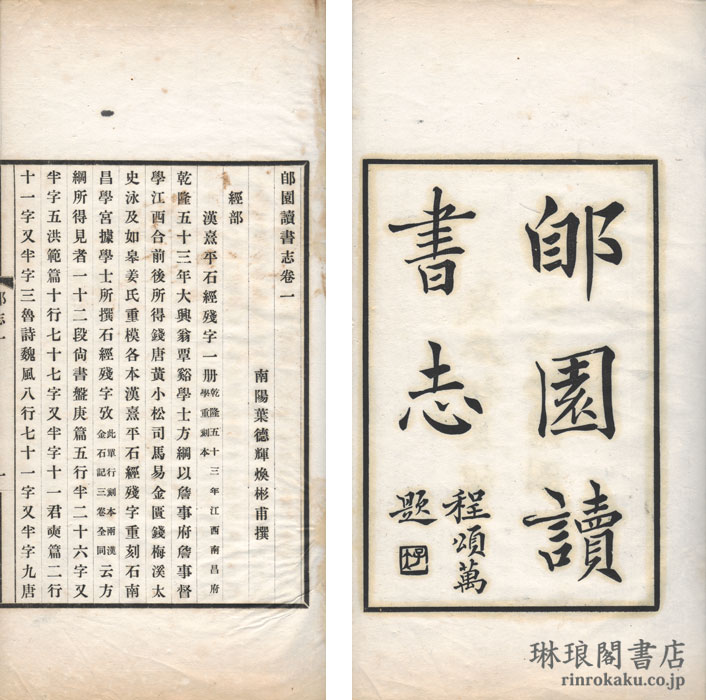 郋園讀
書志
程頌萬
題
郋園讀書志卷一
南陽葉德輝煥彬甫撰
經部
漢熹平石經殘字一册乾隆五十三年江西南昌府學重刻本
乾隆五十三年大興翁覃谿學士方綱以詹事府詹事督
學江西合前後所得錢唐黃小松司馬易金匱錢梅溪太
史泳及如皋姜氏重模各本漢熹平石經殘字重刻石南
昌學宮據學士所撰石經殘字攷此單行刻本兩漢金石記三卷全同云方
綱所得見者一十二段尙書盤庚篇五行半二十六字又
半字五洪範篇十行七十七字又半字十一君奭篇二行
十一字又半字三魯詩魏風八行七十一字又半字九唐
志一
一
琳琅閣書店
rinrokaku.co.jp